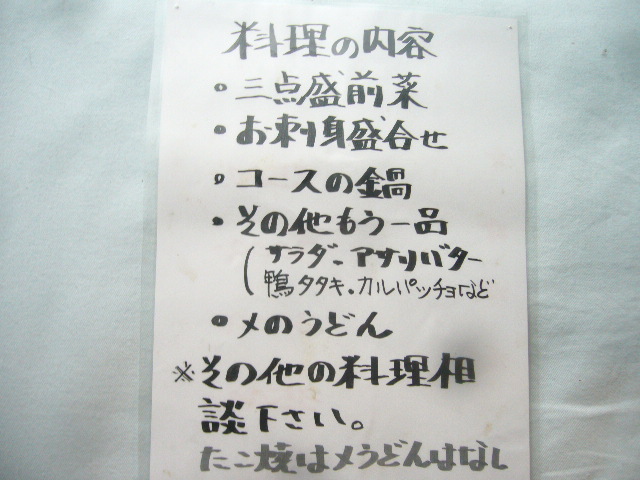 料理の内容
・三点盛前菜
・お刺身盛合せ
・コースの鍋
・その他もう一品
(サラダ・アサリバター
鴨タタキ・カルパッチョなど
・〆のうどん
※その他の料理相
談下さい。
たこ焼は〆うどんはなし